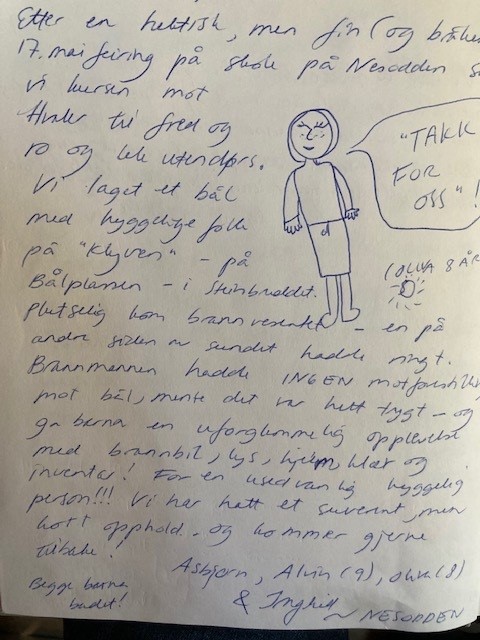 Etter en hektisk, men fin (og
17. mai feiring på skole på Nesodden
vi kursen mot
Hvaler til fred og
ro og lek utendørs.
Vi laget et bål
med hyggelige folk
på "Klyven" - på
Bålplassen - i Steinbruddet.
Plutselig kom brannvesenet - en på
andre siden av sundet hadde ringt.
Brannmannen hadde INGEN
mot bål, mente det var helt trygt - og
ga barna en uforglemmelig opplevelse
med brannbil, lys, hjelm, klær og
inventar! For en usedvanlig hyggelig
person!!! Vi har hatt et suverent, men
kort opphold - og kommer gjerne
tilbake!
Asbjørn, Alvin (9), Oliva (8)
& Ingrid ~ NESODDEN
Begge barna
badet!
"TAKK
FOR
OSS"!
(OLIVA 8 ÅR